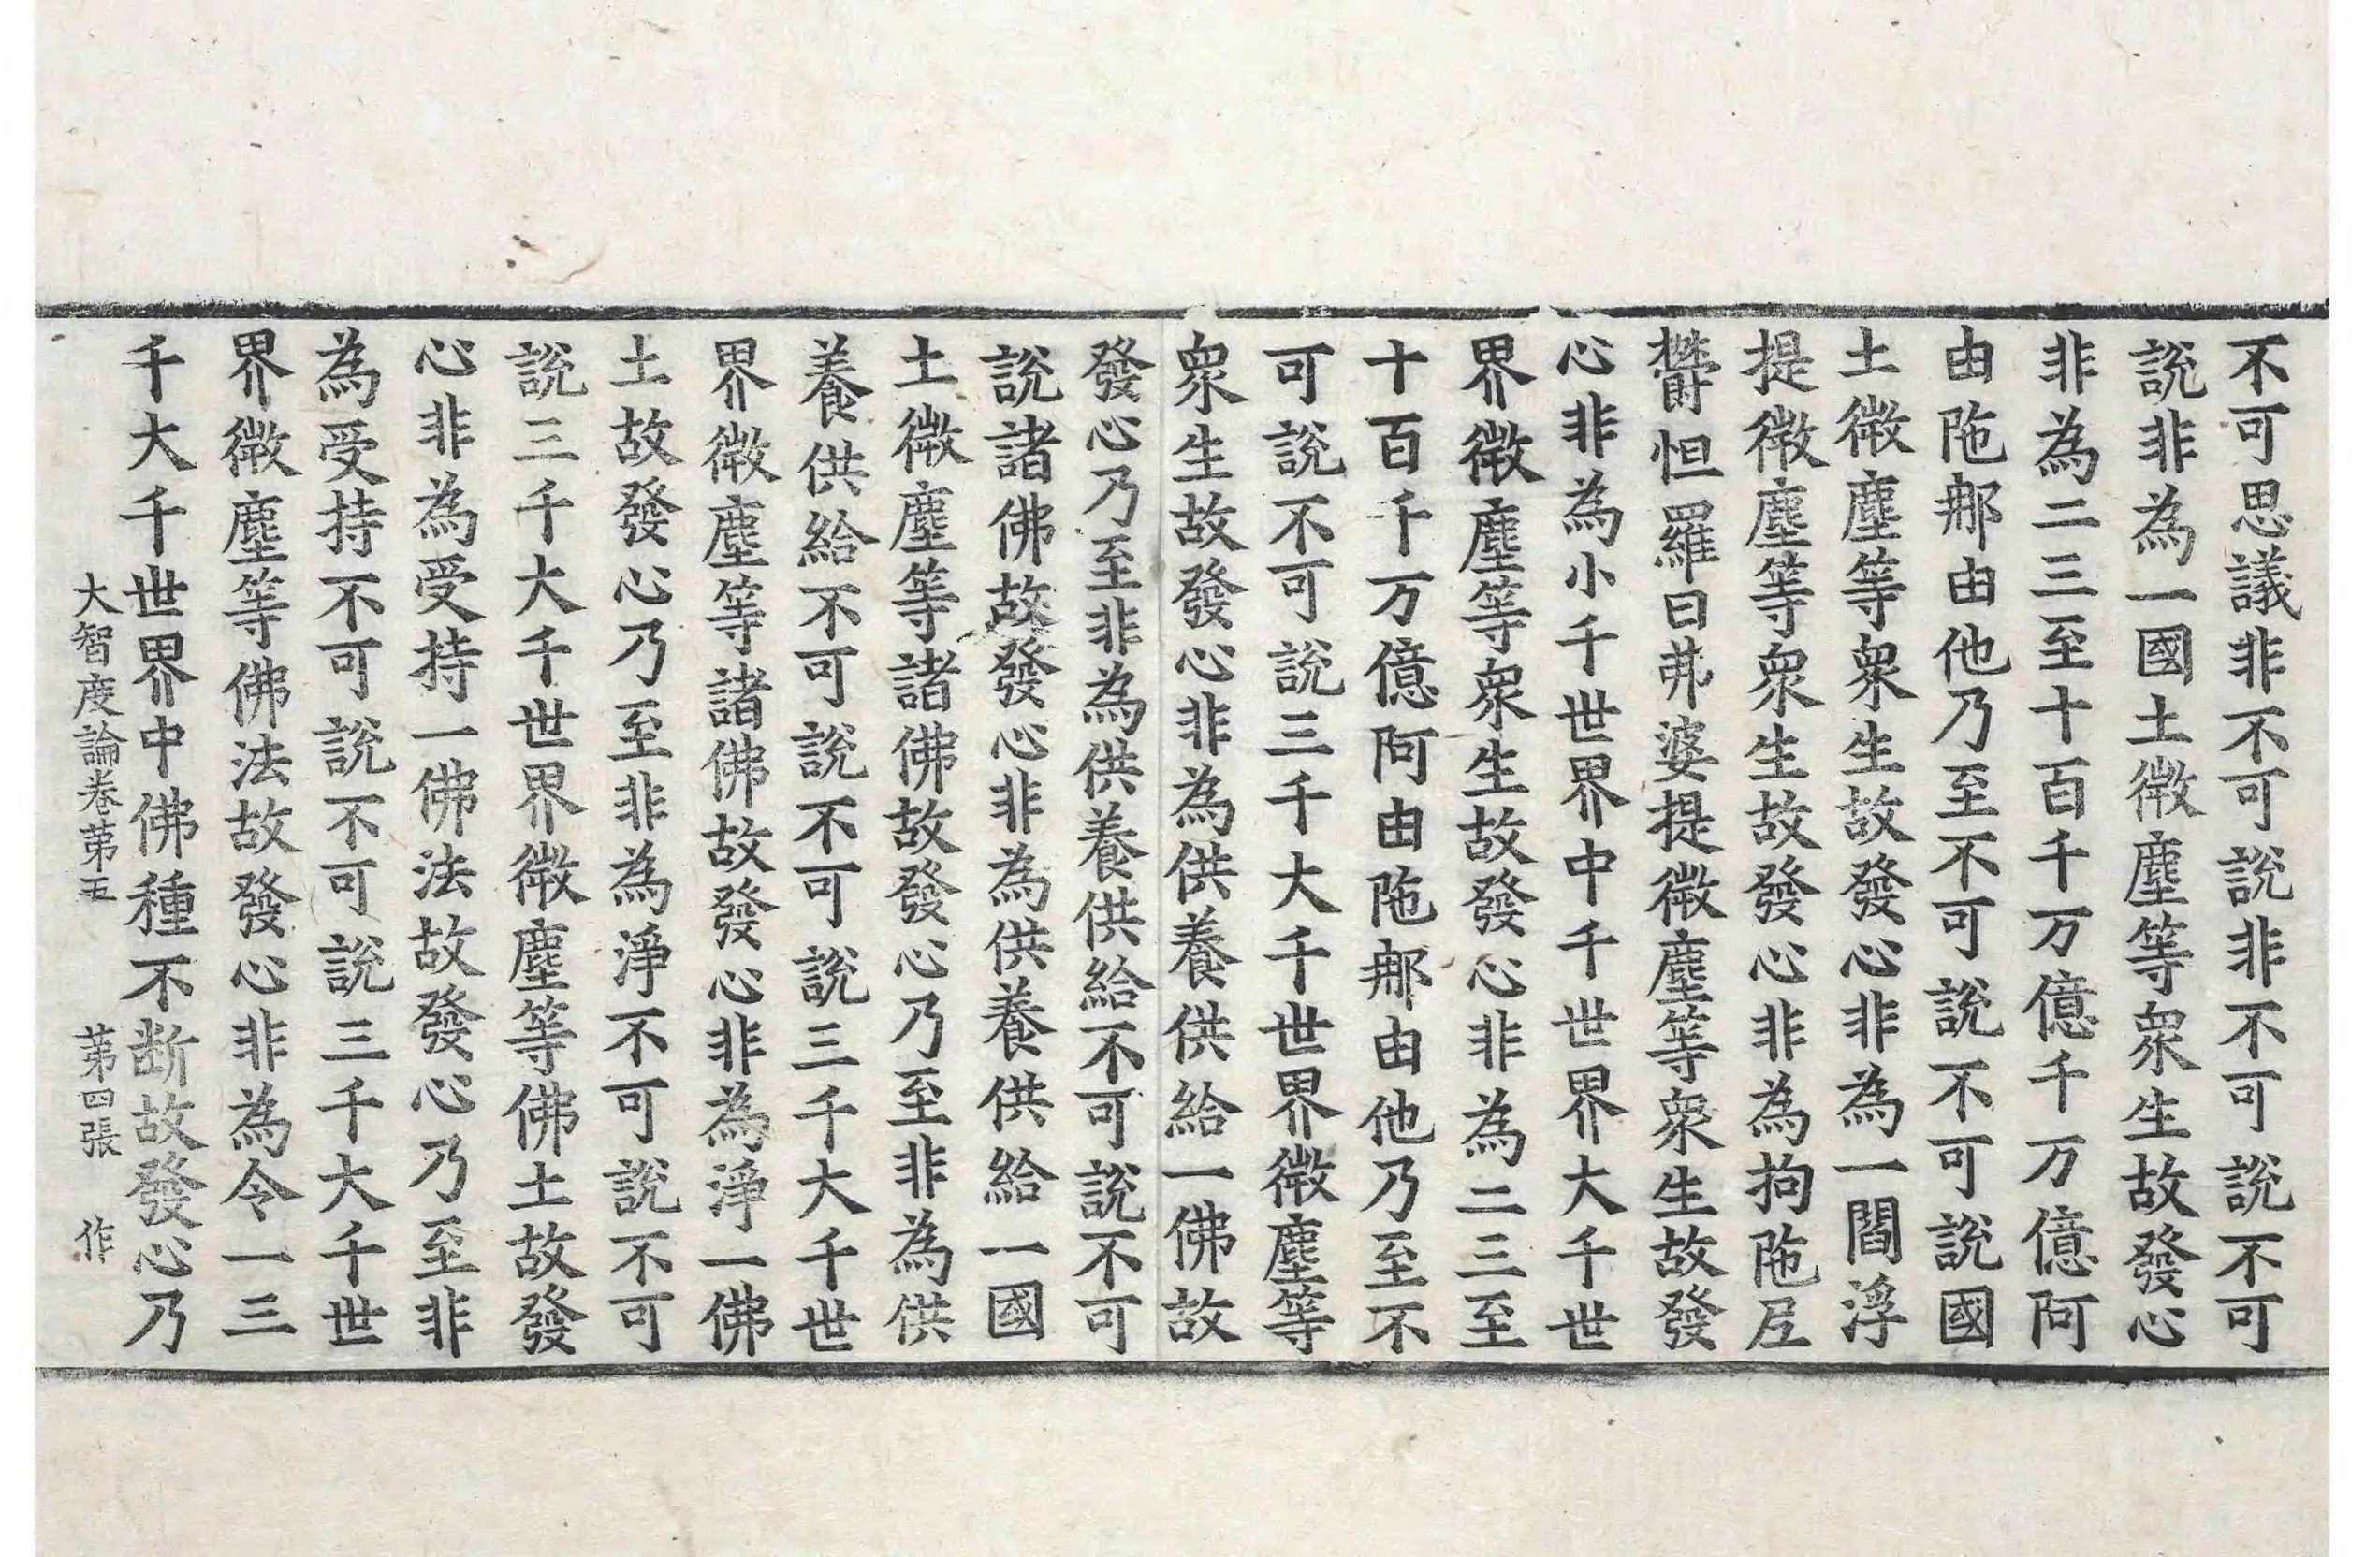 不可思議非不可說非不可說不可
說非為一國土微塵等衆生故發心
非為二三至十百千万億千万億阿
由陁那由他乃至不可說不可說國
土微塵等衆生故發心非為一閻浮
提微塵等衆生故發心非為拘陁尼
欝怛羅曰弗婆提微塵等衆生故發
心非為小千世界中千世界大千世
界微塵等衆生故發心非為二三至
十百千万億阿由陁那由他乃至不
可說不可說三千大千世界微塵等
衆生故發心非為供養供給一佛故
發心乃至非為供養供給不可說不可
說諸佛故發心非為供養供給一國
土微塵等諸佛故發心乃至非為供
養供給不可說不可說三千大千世
界微塵等諸佛故發心非為淨一佛
土故發心乃至非為淨不可說不可
說三千大千世界微塵等佛土故發
心非為受持一佛法故發心乃至非
為受持不可說不可說三千大千世
界微塵等佛法故發心非為令一三
千大千世界中佛種不断故發心乃
大智度論卷苐五 苐四張 作